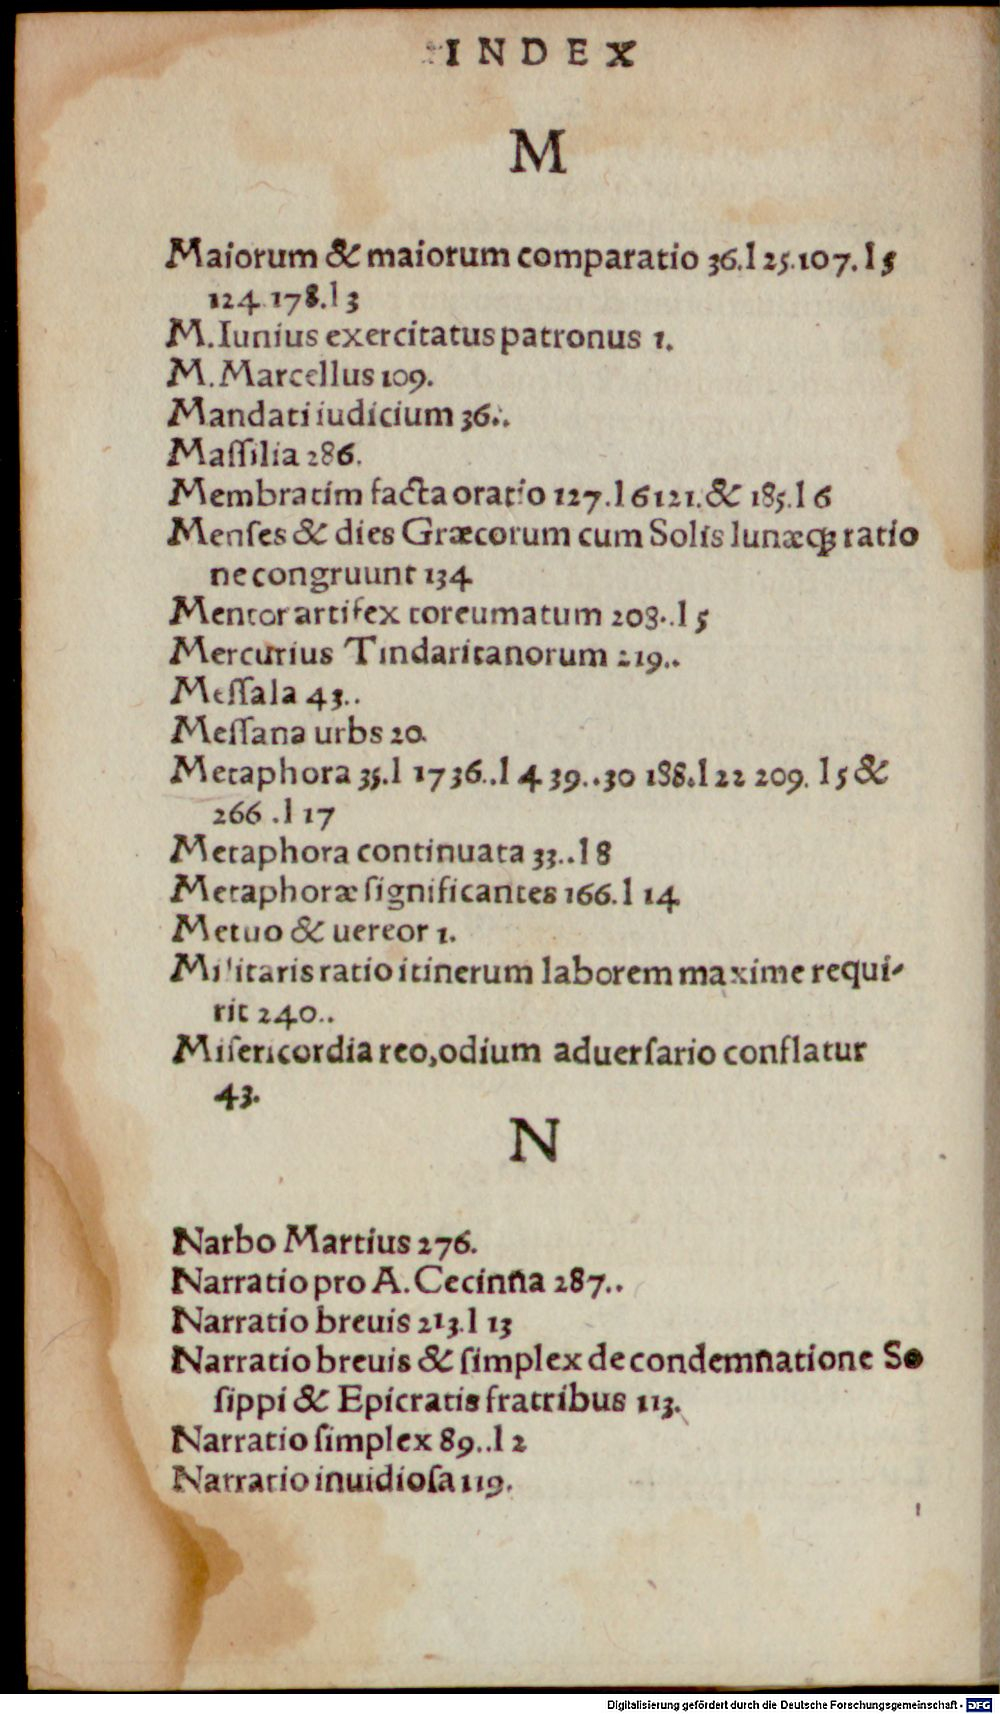 INDEX
M
Maiorum & maiorum comparatio 36.l 25.107. l 5
124.178.l 3
M. Iunius exercitatus patronus 1.
M. Marcellus 109.
Mandati iudicium 36..
Maſſilia 286.
Membratim facta oratio 127.l 6 121.& 185.l 6
Menſes & dies Græcorum cum Solis lunæq; ratio
ne congruunt 134
Mentor artifex toreumatum 208..l 5
Mercurius Tindaritanorum 219..
Meſſala 43..
Meſſana urbs 20.
Metaphora 35.l 17 36..l 4 39..30 188.l 22 209. l 5 &
266 .l 17
Metaphora continuata 33..l 8
Metaphoræ ſignificantes 166.l 14
Metuo & uereor 1.
Militaris ratio itinerum laborem maxime requi-
rit 240..
Miſericordia reo, odium aduerſario conflatur
43.
N
Narbo Martius 276.
Narratio pro A. Cecinna 287..
Narratio breuis 213.l 13
Narratio breuis & ſimplex de condemnatione So
ſippi & Epicratis fratribus 113.
Narratio ſimplex 89..l 2
Narratio inuidioſa 119.
Digitalisierung gefördert durch die Deutsche Forschungsgemeinschaft - DFG